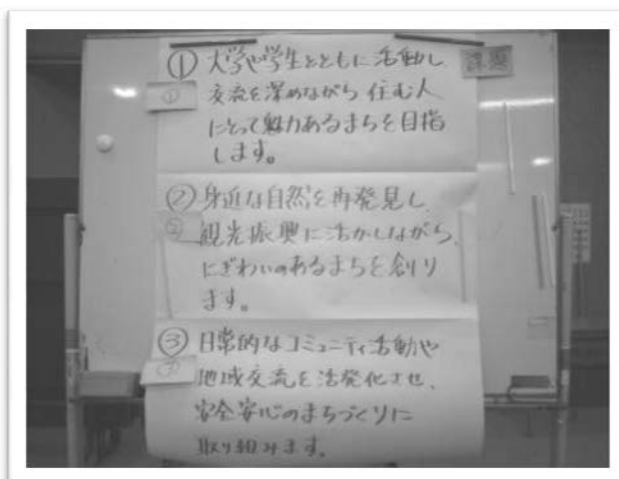 ① 大学や学生とともに活動し
交流を深めながら 住む人
にとって魅力あるまちを目指
します。
課題
①
② 身近な自然を再発見し、
観光振興に活かしながら、
にぎわいのあるまちを創り
ます。
②
③ 日常的なコミュニティ活動や
地域交流を活発化させ、
安全安心のまちづくりに
取り組みます。